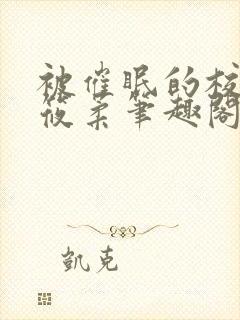 被催眠的校
筱柔笔趣阁
凯克